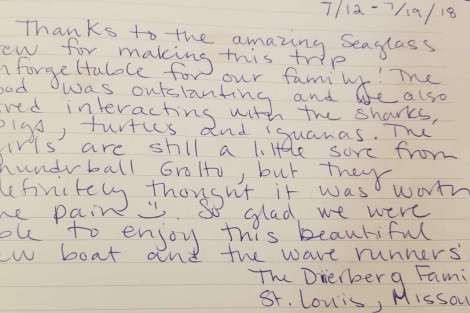 7/12 - 7/19/18
Thanks to the amazing Seaglass
ew for making this trip
nforgettable for our family! The
ood was outstanting and we also
ved interacting with the sharks,
pigs, turtles and iguanas. The
irls are still a little sore from
hunderball Grotto, but they
definitely thought it was worth
he pain :). So glad we were
ble to enjoy this beautiful
ew boat and the wave runners
The Dierberg Fami
St. Louis, Missou